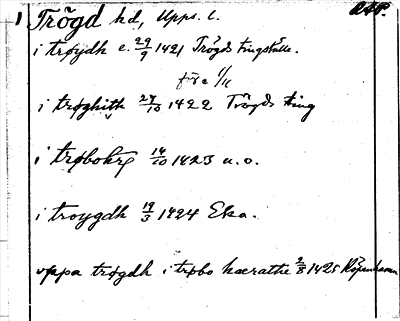 1 Trögd hd, Upps. l. RAP.
i trøydh e. 29/9 1421 Trögds tingställe.
före 1/11
i trøghith 27/10 1422 Trögds ting
i trøbohrg 14/10 1423 u. o.
i troygdh 19/3 1424 Eka.
uppa trøgdh i trøbo hærathe 2/8 1425 Köpenhamn